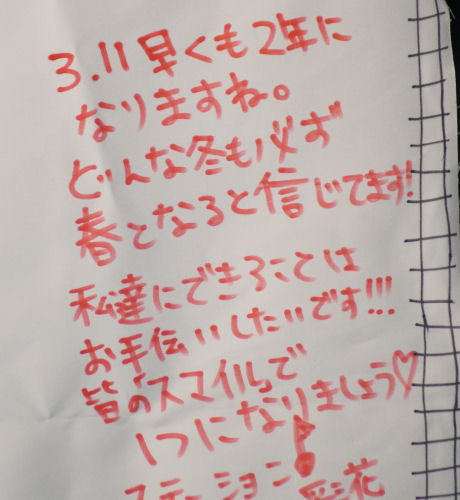 3.11早くも2年に
なりますね。
どんな冬も必ず
春となると信じてます!
私達にできることは
お手伝いしたいです!!!
皆の「スマイル」で
1つになりましょう♡
ステーション♪
彩花